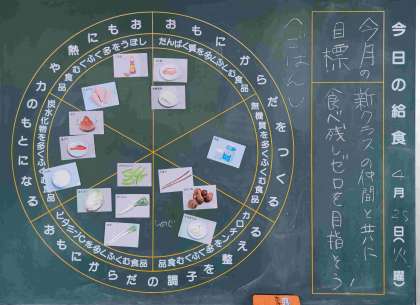 今日の給食 4月25日(火曜)
今月の目標
新クラスの仲間と共に
食べ残しゼロを目指そう!
(ごはん)
おもにからだをつくる
おもにからだの調子を整える
おもに熱や力のもとになる
たんぱく質を多くふくむ食品
無機質を多くふくむ食品
カロチンを多くふくむ食品
ビタミンCを多くふくむ食品
炭水化物を多くふくむ食品
しぼうを多くふくむ食品
しめじ